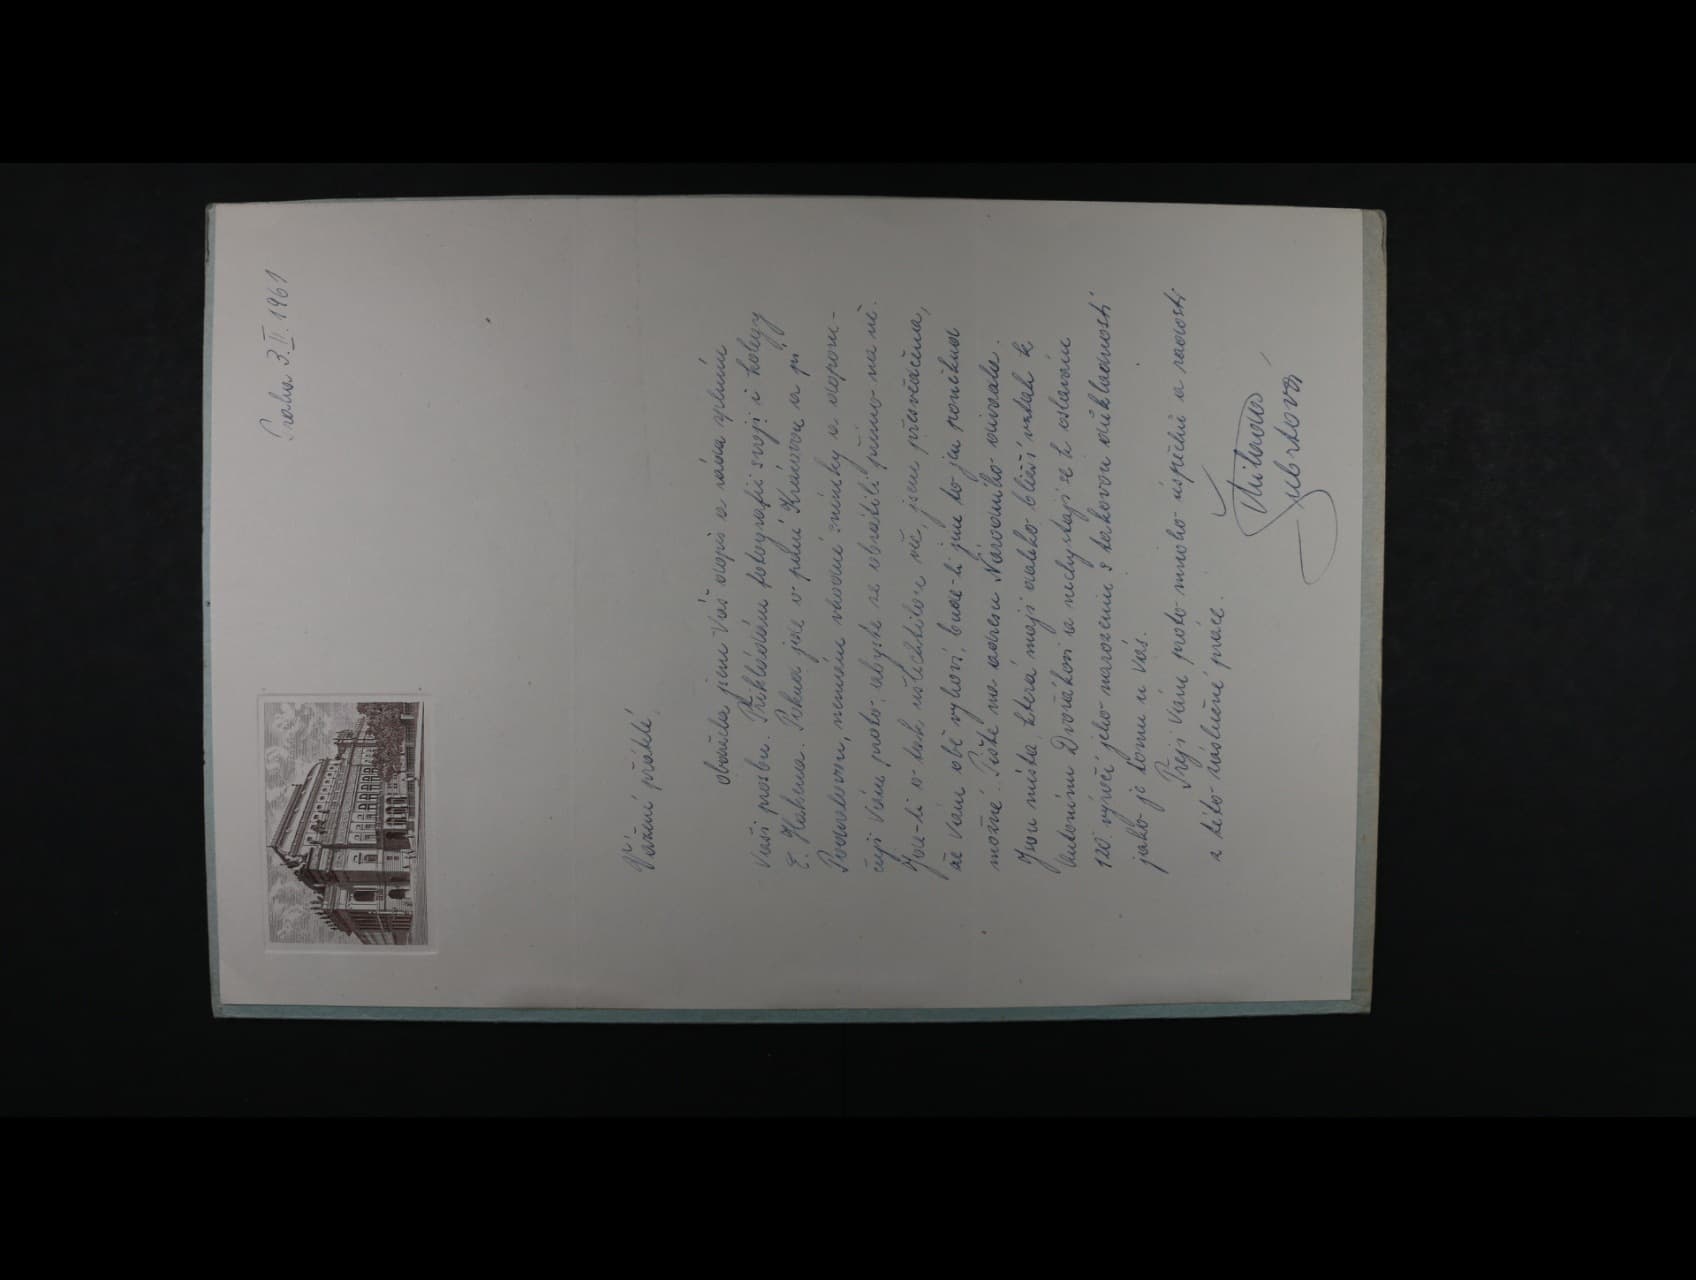 Praha 3.II.1961
Vážení přátelé,
obdržela jsem Váš dopis a ráda splním
Vaši prosbu. Přikládám fotografii svoji i kolegy
E. Hakena. Pokud jde o paní Krásovou a pí
Podvalovou, nemám vhodné snímky a doporu-
čuji Vám proto, abyste se obrátili přímo na ně.
Jde-li o tak ušlechtilou věc, jsem přesvědčena,
že Vám obě vyhoví, bude-li jim to jen poněkud
možné. Pište na adresu Národního divadla.
Jsou místa, která mají daleko bližší vztah k
Antonínu Dvořákovi a nechystají se k oslavám
120 výročí jeho narozenin s takovou důkladností
jako je tomu u Vás.
Přeji Vám proto mnoho úspěchů a radosti
z této záslužné práce.
Milada
Šubrtová